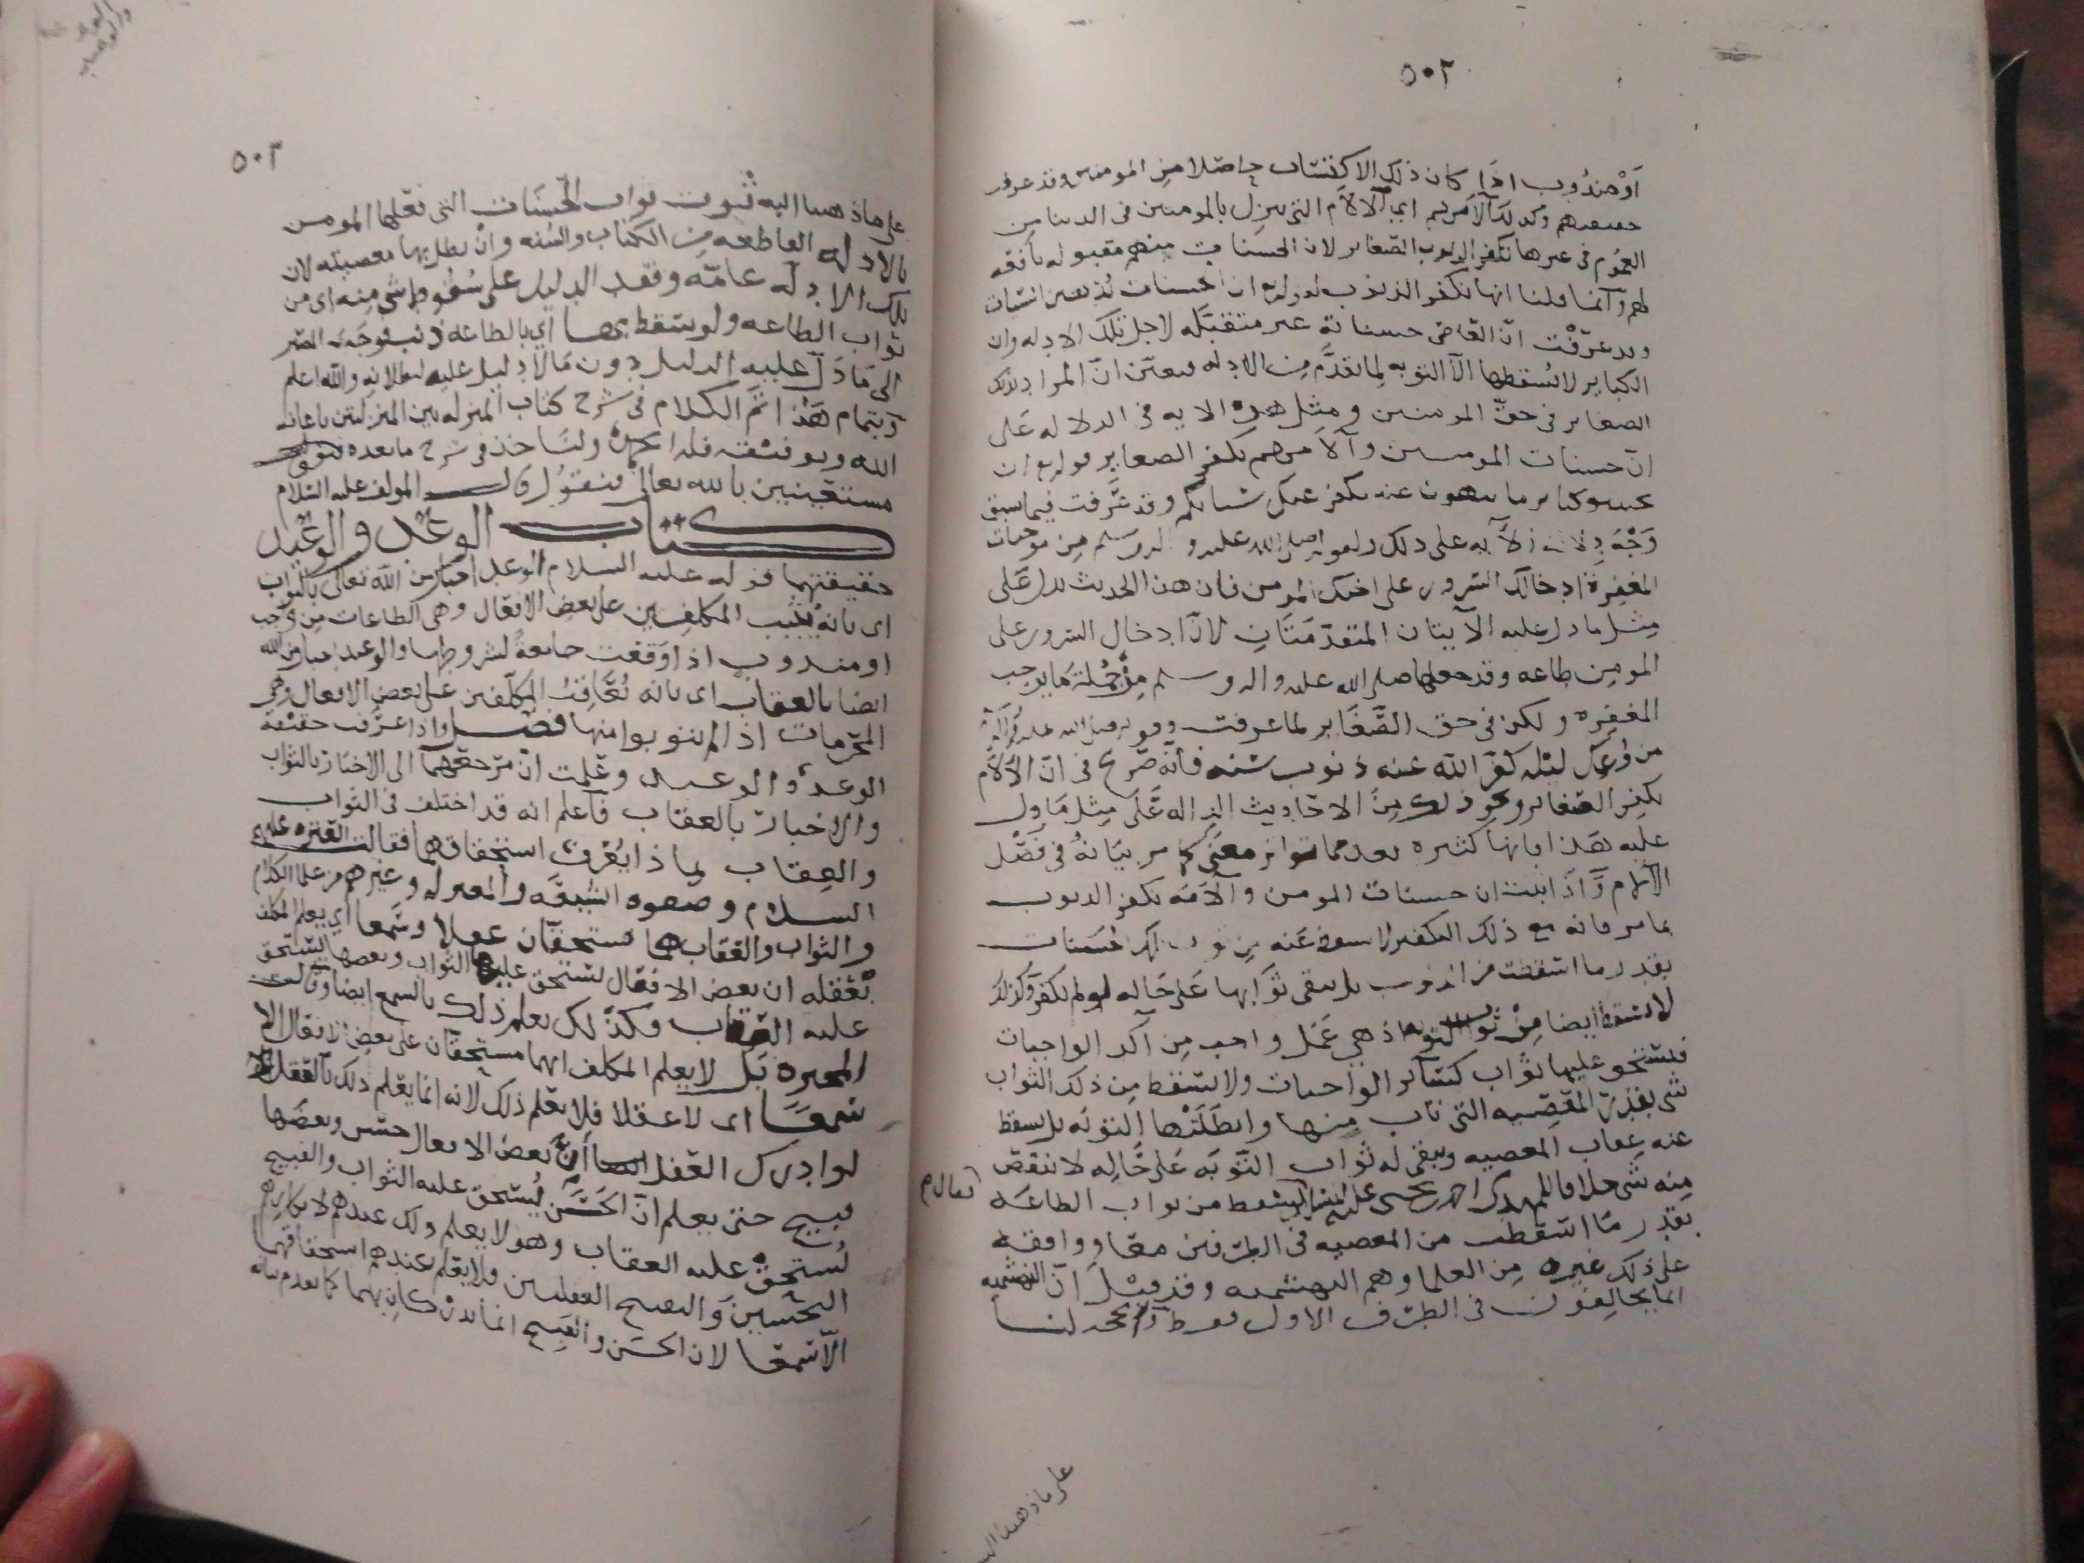 ٥٠٢
او مندوب اذا كان ذلك الاكتساب حاصلا من المومنين وقد عرفت
حقيقتهم وكذلك الامر بهم اي الآلام التي تنزل بالمومنين في الدنيا من
الغموم في غيرها تكفر الذنوب الصغاير لان الحسنات منهم مقبوله نافعه
لهم وانما قلنا انها تكفر الذنوب لقوله تع ان الحسنات يذهبن السيات
وقد عرفت ان العاصي حسناته غير متقبله لاجل تلك الادله وان
الكباير لا يسقطها الا التوبه لما تقدم من الادله فتعين ان المراد بذلك
الصغاير في حق المومنين ومثل هذه الايه في الدلاله على
ان حسنات المومنين وآلامهم تكفر الصغاير قوله تع ان
تجتنبوا كباير ما تنهون عنه نكفر عنكم سياتكم وقد عرفت فيما سبق
وجه دلالة الآيه على ذلك ولقوله صلى الله عليه واله وسلم من موجبات
المغفرة ادخالك السرور على اخيك المومن فان هذا الحديث يدل على
مثل ما دل عليه الآيتان المتقدمتان لان ادخال السرور على
المومن طاعه وقد جعلها صلى الله عليه واله وسلم من جملة ما يوجب
المغفره ولكن في حق الصغاير لما عرفت وقوله صلى الله عليه واله
من وعك ليله كفر الله عنه ذنوب سنه فانه صريح في ان الآلام
تكفر الصغاير ونحو ذلك من الاحاديث الداله على مثل ما دل
عليه هذا فانها كثيره تعد مما تواتر معنى كما مر بيانه في فصل
الآلام واذا ثبت ان حسنات المومن وآلامه تكفر الذنوب
بما مر فانه مع ذلك التكفير لا يسقط عنه من ثواب تلك الحسنات
بقدر ما اسقطت من الذنوب بل يبقى ثوابها على حاله لو لم تكفر وكذلك
لا يسقط ايضا من ثواب التوبه اذ هي عمل واجب من آكد الواجبات
فيستحق عليها ثواب كساير الواجبات ولا يسقط من ذلك الثواب
شي بقدر المعصيه التي تاب منها وابطلتها التوبه بل يسقط
عنه عقاب المعصيه ويبقى له ثواب التوبه على حاله لا ينقص
منه شي خلافا للمهدي احمد بن يحيى عليه السلام يسقط من ثواب الطاعه
بقدر ما اسقطت من المعصيه في الطرفين معا ووافقه
على ذلك غيره من العلما وهم البهشميه وقد قيل ان البهشميه
انما يخالفون في الطرف الاول فقط لنا
على ما ذهبنا اليه
٥٠٣
على ما ذهبنا اليه ثبوت ثواب الحسنات التي فعلها المومن
بالادله القاطعه من الكتاب والسنه وان بطل بها معصيته لان
تلك الادله عامه وفقد الدليل على سقوط شي منه اي من
ثواب الطاعه ولو سقط بها اي بالطاعه ذنب فوجب المصير
الى ما دل عليه الدليل دون ما لا دليل عليه لبطلانه والله اعلم
وبتمام هذا تم الكلام في شرح كتاب المنزله بين المنزلتين باعانه
الله وبوفيقه فله الحمد ولناخذ في شرح ما بعده
مستعينين بالله تعالى فنقول قال المولف عليه السلام
كتاب الوعد والوعيد
حقيقتهما قوله عليه السلام الوعد اخبار من الله تعالى بالثواب
اي بانه يثيب المكلفين على بعض الافعال وهي الطاعات من واجب
او مندوب اذا وقعت جامعة لشروطها والوعيد اخبار من الله
ايضا بالعقاب اي بانه يعاقب المكلفين على بعض الافعال وهي
المحرمات اذا لم يتوبوا منها فصل واذا عرفت حقيقة
الوعد والوعيد وعلمت ان مرجعهما الى الاخبار بالثواب
والاخبار بالعقاب فاعلم انه قد اختلف في الثواب
والعقاب بماذا يعرف استحقاقهما فقالت العتره عليهم
السلام وصفوه الشيعه والمعتزله وغيرهم من علما الكلام
والثواب والعقاب هما مستحقان عقلا وسمعا اي يعلم المكلف
بعقله ان بعض الافعال يستحق عليها الثواب وبعضها يستحق
عليه العقاب وكذلك يعلم ذلك بالسمع ايضا وقالت
المجبره بل لا يعلم المكلف انهما مستحقان على بعض الافعال الا
سمعا اي لا عقلا فلا يعلم ذلك لانه انما يعلم ذلك بالعقل
لو ادرك العقل ان بعض الافعال حسن وبعضها
قبيح حتى يعلم ان الحسن يستحق عليه الثواب والقبيح
يستحق عليه العقاب وهو لا يعلم ذلك عندهم لانكارهم
التحسين والتقبيح العقليين فلا يعلم عندهم استحقاقهما
الا سمعا لان الحسن والقبيح انما يدركان بهما كما تقدم بيانه
الوعد
والوعيد